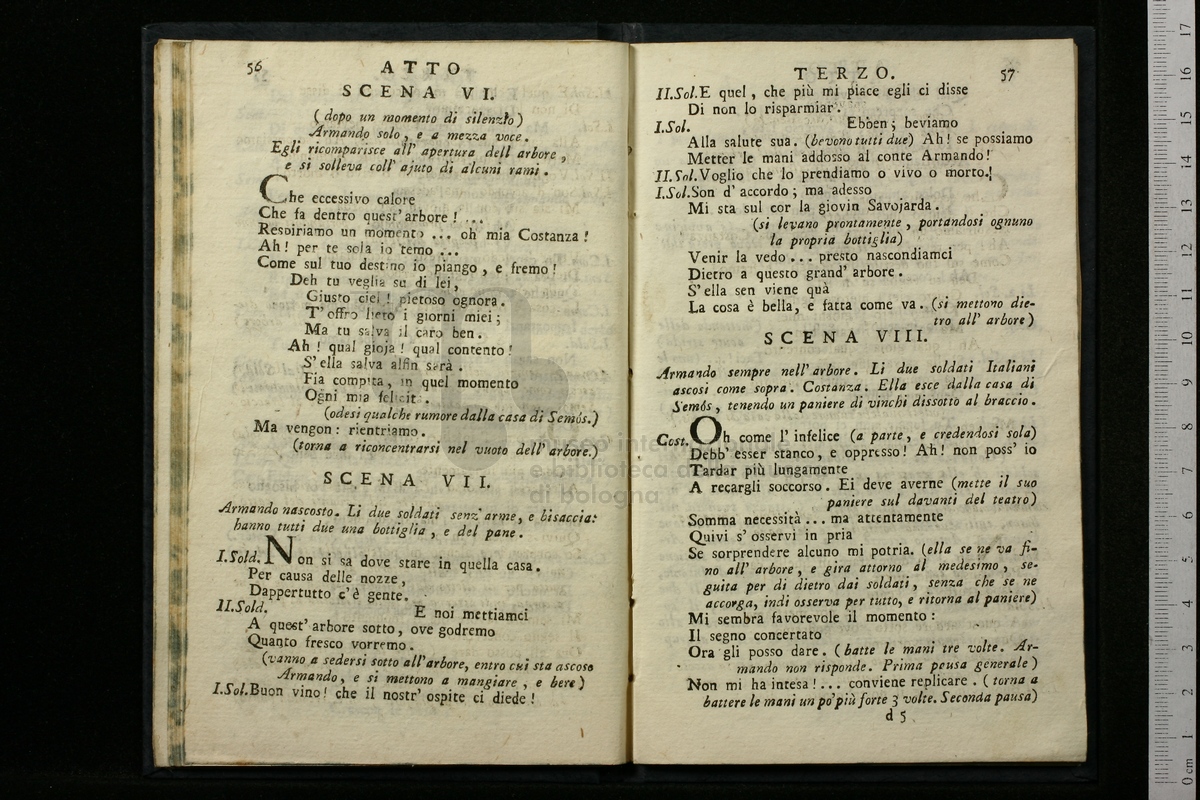 56
ATTO
SCENA VI.
(dopo un momento di silenzio)
Armando solo, e a mezza voce.
Egli ricomparisce all' apertura dell arbore,
e si solleva coll' ajuto di alcuni rami.
Che eccessivo calore
Che fa dentro quest' arbore! ...
Respiriamo un momento ... oh mia Costanza!
Ah! per te sola io temo ...
Come sul tuo destino io piango, e fremo!
Deh tu veglia su di lei,
Giusto ciel! pietoso ognora.
T' offro lieto i giorni miei;
Ma tu salva il caro ben.
Ah! qual gioja! qual contento!
S' ella salva alfin sarà.
Fia compita, in quel momento
Ogni mia felicità.
(odesi qualche rumore dalla casa di Semós.)
Ma vengon: rientriamo.
(torna a riconcentrarsi nel vuoto dell' arbore.)
SCENA VII.
Armando nascosto. Li due soldati senz' arme, e bisaccia:
hanno tutti due una bottiglia, e del pane.
I.Sold. Non si sa dove stare in quella casa.
Per causa delle nozze,
Dappertutto c'è gente.
II.Sold. E noi mettiamci
A quest' arbore sotto, ove godremo
Quanto fresco vorremo.
(vanno a sedersi sotto all' arbore, entro cui sta ascoso
Armando, e si mettono a mangiare, e bere)
I.Sol. Buon vino! che il nostr' ospite ci diede!
TERZO. 57
II.Sol. E quel, che più mi piace egli ci disse
Di non lo risparmiar.
I.Sol. Ebben; beviamo
Alla salute sua. (bevono tutti due) Ah! se possiamo
Metter le mani addosso al conte Armando!
II.Sol. Voglio che lo prendiamo o vivo o morto.!
I.Sol. Son d' accordo; ma adesso
Mi sta sul cor la giovin Savojarda.
(si levano prontamente, portandosi ognuno
la propria bottiglia)
Venir la vedo ... presto nascondiamci
Dietro a questo grand' arbore.
S' ella sen viene quà
La cosa è bella, e fatta come va. (si mettono die-
tro all' arbore)
SCENA VIII.
Armando sempre nell' arbore. Li due soldati Italiani
ascosi come sopra. Costanza. Ella esce dalla casa di
Semós, tenendo un paniere di vinchi dissotto al braccio.
Cost. Oh come l' infelice (a parte, e credendosi sola)
Debb' esser stanco, e oppresso! Ah! non poss' io
Tardar più lungamente
A recargli soccorso. Ei deve averne (mette il suo
paniere sul davanti del teatro)
Somma necessità ... ma attentamente
Quivi s' osservi in pria
Se sorprendere alcuno mi potria. (ella se ne va fi-
no all' arbore, e gira attorno al medesimo, se-
guita per di dietro dai soldati, senza che se ne
accorga, indi osserva per tutto, e ritorna al paniere)
Mi sembra favorevole il momento:
Il segno concertato
Ora gli posso dare. (batte le mani tre volte. Ar-
mando non risponde. Prima pausa generale)
Non mi ha intesa! ... conviene replicare. (torna a
battere le mani un po' più forte 3 volte. Seconda pausa)
d 5